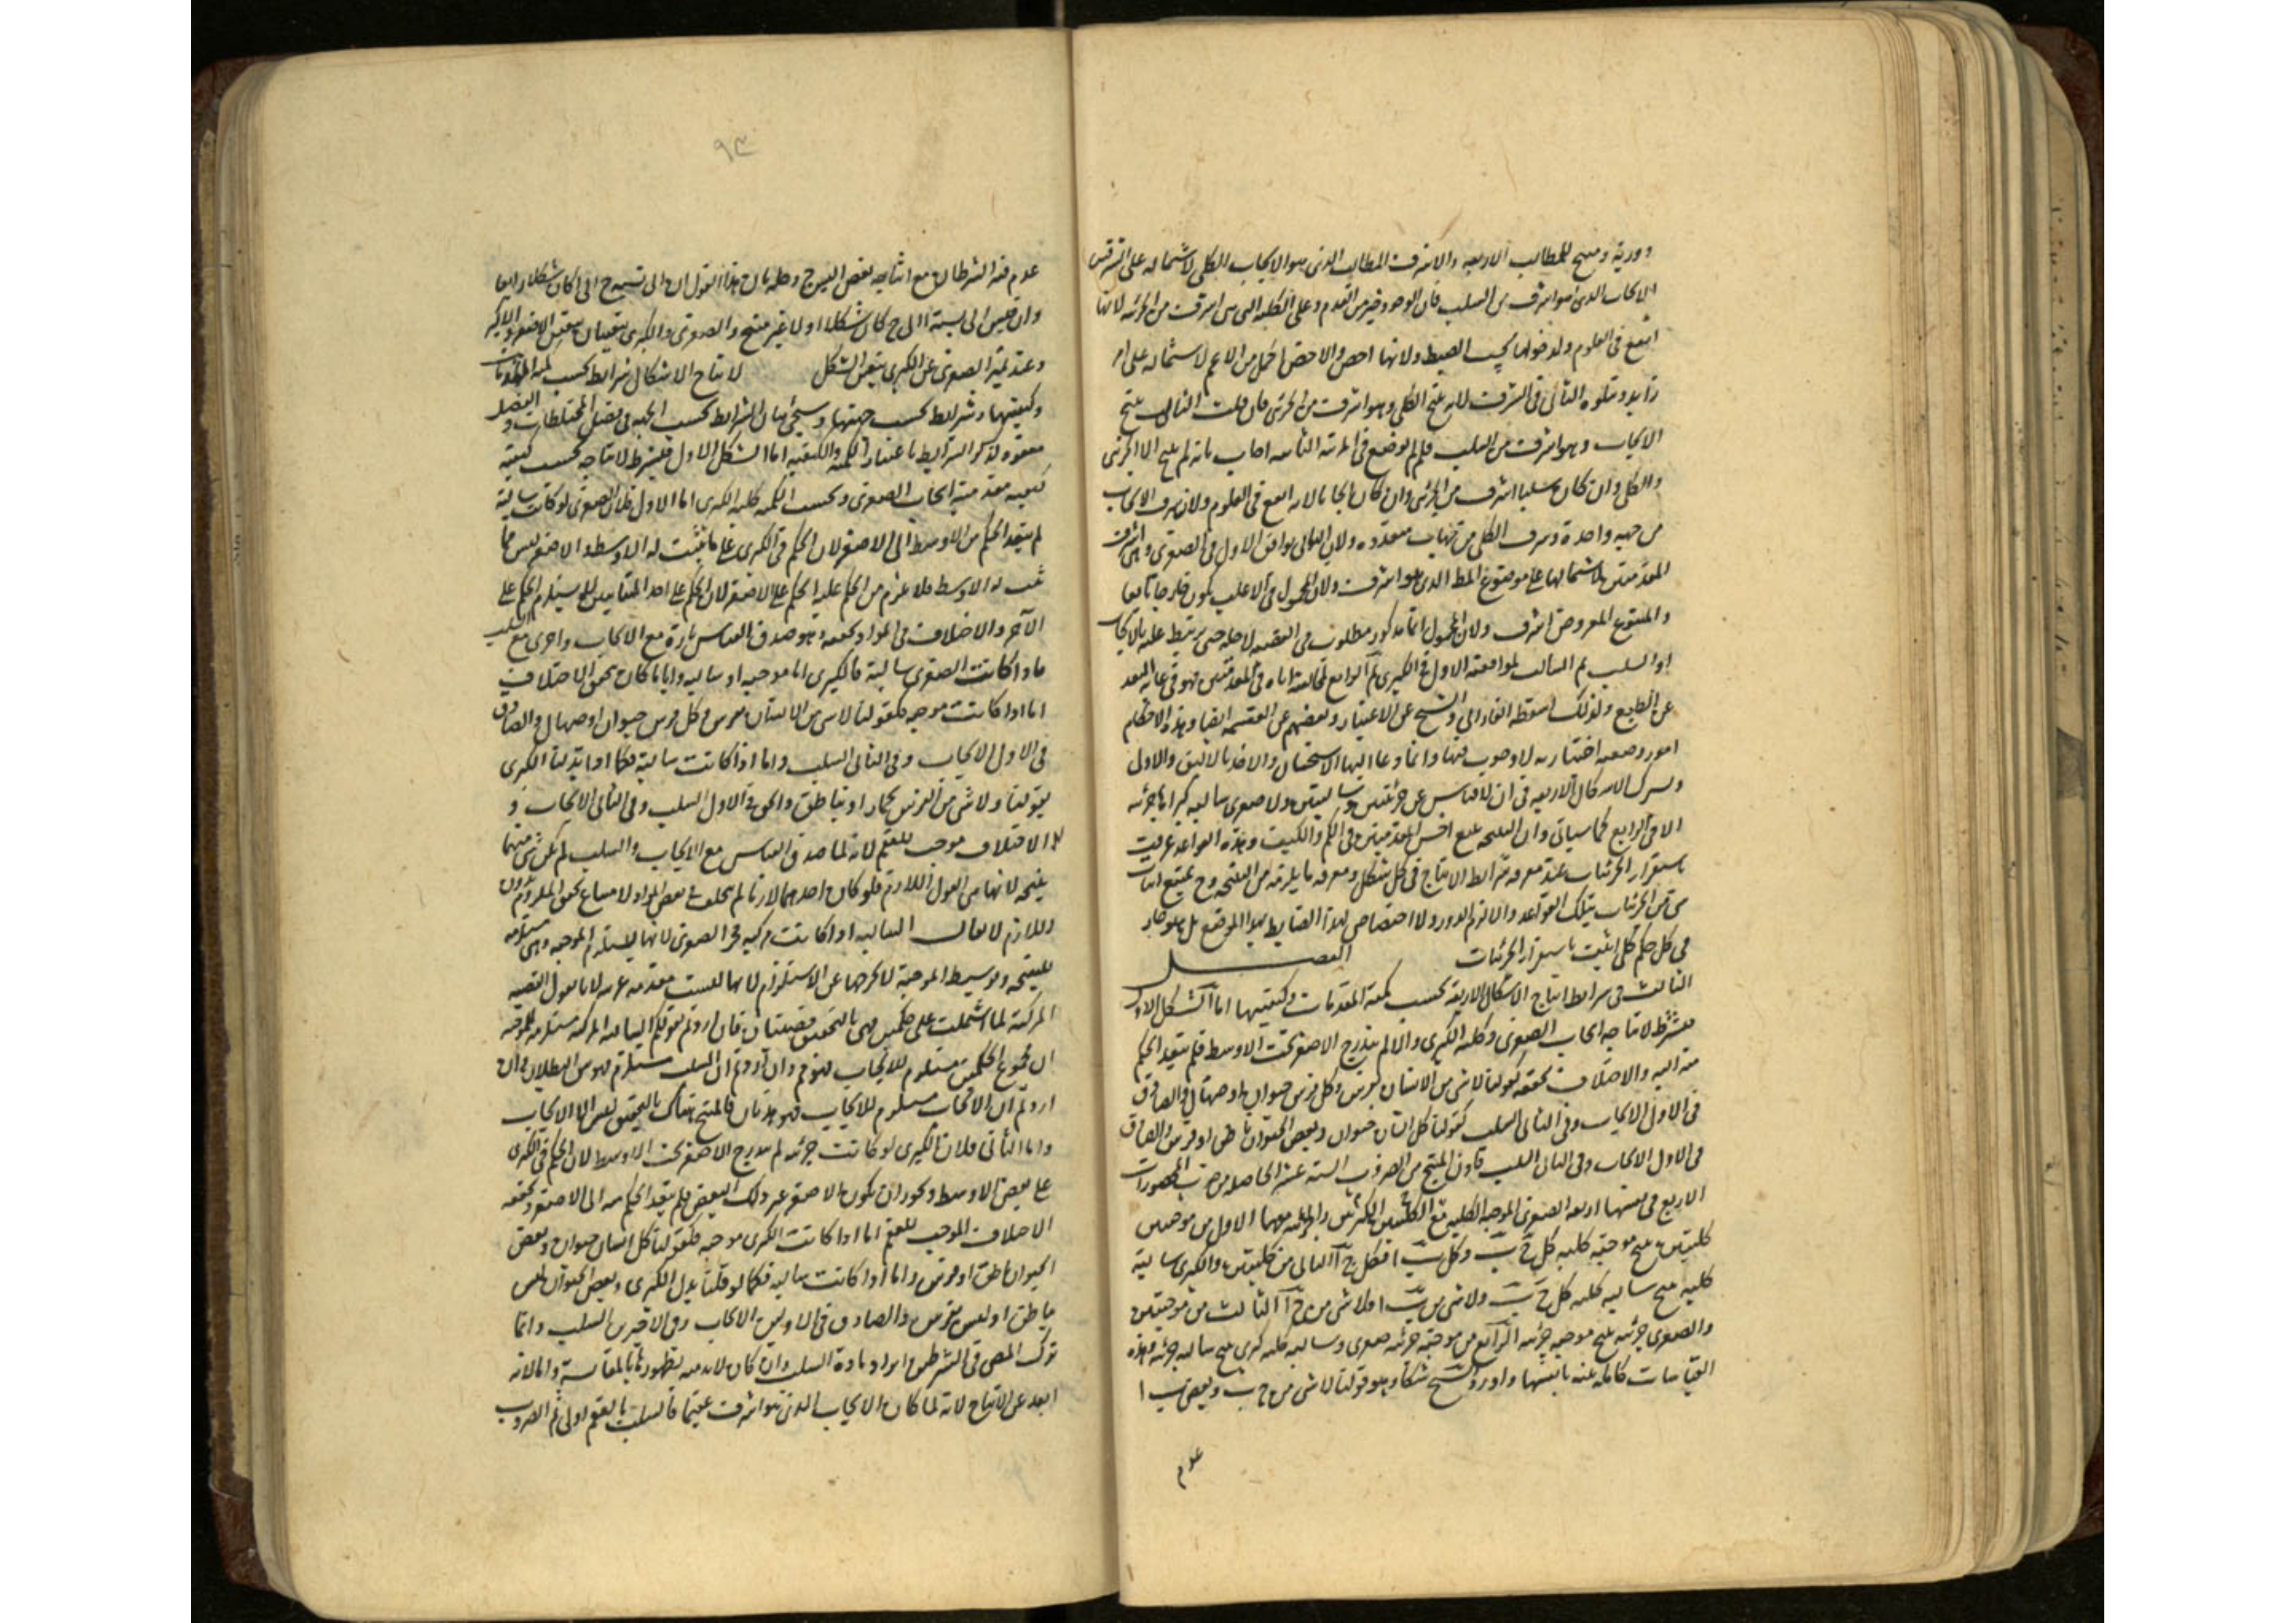 دورية ومنتج للمطالب الاربعة والاشرف المطالب الذى هو الايجاب الكلى لاشتماله على الشرفين
الايجاب الذى هو اشرف من السلب فان الوجود خير من العدم وعلى الكلية التى هى اشرف من الجزئية لانها
انفع فى العلوم ولدخولها تحت الضبط ولانها اخص والاخص اكمل من الاعم لاشتماله على امر
زايد ويتلوه الثانى فى الشرف لانه ينتج الكلى وهو اشرف من الجزئى فان قلت الثالث ينتج
الايجاب وهو اشرف من السلب فلم لم يوضع فى المرتبة الثانية اجاب بانه لم ينتج الا الجزئى
والكلى وان كان سلبا اشرف من الجزئى وان كان ايجابا لانه انفع فى العلوم ولان شرف الايجاب
من جهة واحدة وشرف الكلى من جهات متعددة ولان الثانى يوافق الاول فى الصغرى وهى اشرف
المقدمتين لاشتمالها على موضوع المط الذى هو اشرف ولان المحمول فى الاغلب يكون خارجا تابعا
والمتبوع المعروض اشرف ولان المحمول انما يكون مطلوب فى القضية لاجله حتى يرتبط عليه بالايجاب
او السلب ثم الثالث لموافقته الاول فى الكبرى ثم الرابع لمخالفته اياه فى المقدمتين فهو فى غاية البعد
عن الطبع ولذلك اسقطه الفارابى والشيخ عن الاعتبار وبعضهم عن القسمة ايضا وهذه الاحكام
امور وضعية اختيارية لا وجوب فيها وانما دعا اليها الاستحسان والاخذ بالاليق والاولى
ويشترك الاشكال الاربعة فى ان لا قياس عن جزئيتين وسالبتين ولا صغرى سالبة كبراها جزئية
الا فى الرابع كما سياتى وان النتيجة تتبع اخس المقدمتين فى الكم والكيف وهذه القواعد عرفت
باستقراء الجزئيات عند معرفة شرائط الانتاج فى كل شكل ومعرفة ما يلزمه من النتيجة وح يمتنع اثبات
شى من الجزئيات بتلك القواعد والا لزم الدور ولا اختصاص لهذا الضابط بهذا الموضع بل هو جار
فى كل حكم كلى اثبت باستقراء الجزئيات الفصل
الثالث فى شرائط انتاج الاشكال الاربعة بحسب كمية المقدمات وكيفيتها اما الشكل الاول
فيشترط لانتاجه ايجاب الصغرى وكلية الكبرى والا لم يندرج الاصغر تحت الاوسط فلم يتعد الحكم
منه اليه والاختلاف يحققه كقولنا لا شى من الانسان بفرس وكل فرس حيوان او صهال والصادق
فى الاول الايجاب وفى الثانى السلب كقولنا كل انسان حيوان وبعض الحيوان ناطق او فرس والصادق
فى الاول الايجاب وفى الثانى السلب فاذن المنتج من الضروب الستة عشر الحاصلة من ضرب المحصورات
الاربع فى نفسها اربعة الصغرى الموجبة الكلية مع الكليتين الكبريين والجزئية معهما الاول من موجبتين
كليتين ينتج موجبة كلية كل ج ب وكل ب ا فكل ج ا الثانى من كليتين والكبرى سالبة
كلية ينتج سالبة كلية كل ج ب ولا شى من ب ا فلا شى من ج ا الثالث من موجبتين
والصغرى جزئية ينتج موجبة جزئية الرابع من موجبة جزئية صغرى وسالبة كلية كبرى ينتج سالبة جزئية وهذه
القياسات كاملة بينة بانفسها واورد الشيخ شكا وهو قولنا لا شى من ج ب وبعض ب ا
عدم
٩٣
عدم فيه الشرطان مع انتاجه بعض اليس ج وحله بان هذا القول ان الى نسبة ج الى ا كان شكلا رابعا
وان قيس الى نسبة ا الى ج كان شكلا اولا غير منتج والصغرى والكبرى يتعينان بتعين الاصغر والاكبر
وعند تميز الصغرى عن الكبرى يتعين الشكل لانتاج الاشكال شرائط بحسب كمية المقدمات
وكيفيتها وشرائط بحسب جهتها وسيجئ بيان الشرائط بحسب الجهة فى فصل المختلطات والفصل
معقود لذكر الشرائط باعتبار الكمية والكيفية اما الشكل الاول فيشترط لانتاجه بحسب كيفية
كيفية مقدمتيه ايجاب الصغرى وبحسب الكمية كلية الكبرى اما الاول فلان الصغرى لو كانت سالبة
لم يتعد الحكم من الاوسط الى الاصغر لان الحكم فى الكبرى على ما يثبت له الاوسط والاصغر ليس مما
ثبت له الاوسط فلا يلزم من الحكم عليه الحكم على الاصغر لان الحكم على احد المتباينين لا يستلزم الحكم على
الآخر والاختلاف فى المواد يحققه وهو صدق القياس تارة مع الايجاب واخرى مع السلب
فاذا كانت الصغرى سالبة فالكبرى اما موجبة او سالبة وايا ما كان يتحقق الاختلاف
اما اذا كانت موجبة فكقولنا لا شى من الانسان بفرس وكل فرس حيوان او صهال والصادق
فى الاول الايجاب وفى الثانى السلب واما اذا كانت سالبة فكما اذا بدلنا الكبرى
بقولنا ولا شى من الفرس بحمار او بناطق والحق فى الاول السلب وفى الثانى الايجاب و
هذا الاختلاف موجب للعقم لانه لما صدق القياس مع الايجاب والسلب لم يكن شى منهما
نتيجة لانها هى القول اللازم فلو كان احدهما لازما لم يتخلف فى بعض المواد لامتناع تحقق الملزوم بدون
اللازم لا يقال السالبة اذا كانت مركبة فى الصغرى لانها يستلزم الموجبة وهى مستلزمة
للنتيجة وتوسيط الموجبة لا يخرجها عن الاستلزام لانها ليست مقدمة غريبة لانا نقول القضية
المركبة لما اشتملت على حكمين فهى بالتحقيق قضيتان فان اردتم بقولكم السالبة المركبة مستلزمة للموجبة
ان مجموع الحكمين مستلزم للايجاب فهو م وان اردتم ان السلب مستلزم فهو بين البطلان وان
اردتم ان الايجاب مستلزم للايجاب فهو هذيان فالمنتج هناك بالتحقيق ليس الا الايجاب
واما الثانى فلان الكبرى لو كانت جزئية لم يندرج الاصغر تحت الاوسط لان الحكم فى الكبرى
على بعض الاوسط ويجوز ان يكون الاصغر غير ذلك البعض فلم يتعد الحكم منه الى الاصغر ويحققه
الاختلاف الموجب للعقم اما اذا كانت الكبرى موجبة فكقولنا كل انسان حيوان وبعض
الحيوان ناطق او فرس واما اذا كانت سالبة فكما لو قلنا بدل الكبرى وبعض الحيوان ليس
بناطق او ليس بفرس والصادق فى الاوليين الايجاب وفى الاخيرين السلب وانما
ترك المص فى الشرطين ايراد مادة السلب وان كان لابد منه لظهورها بالمقايسة والا لانه
ابعد عن الانتاج لانه لما كان الايجاب الذى هو اشرف عقيما فالسلب بالعقم اولى ثم الضروب